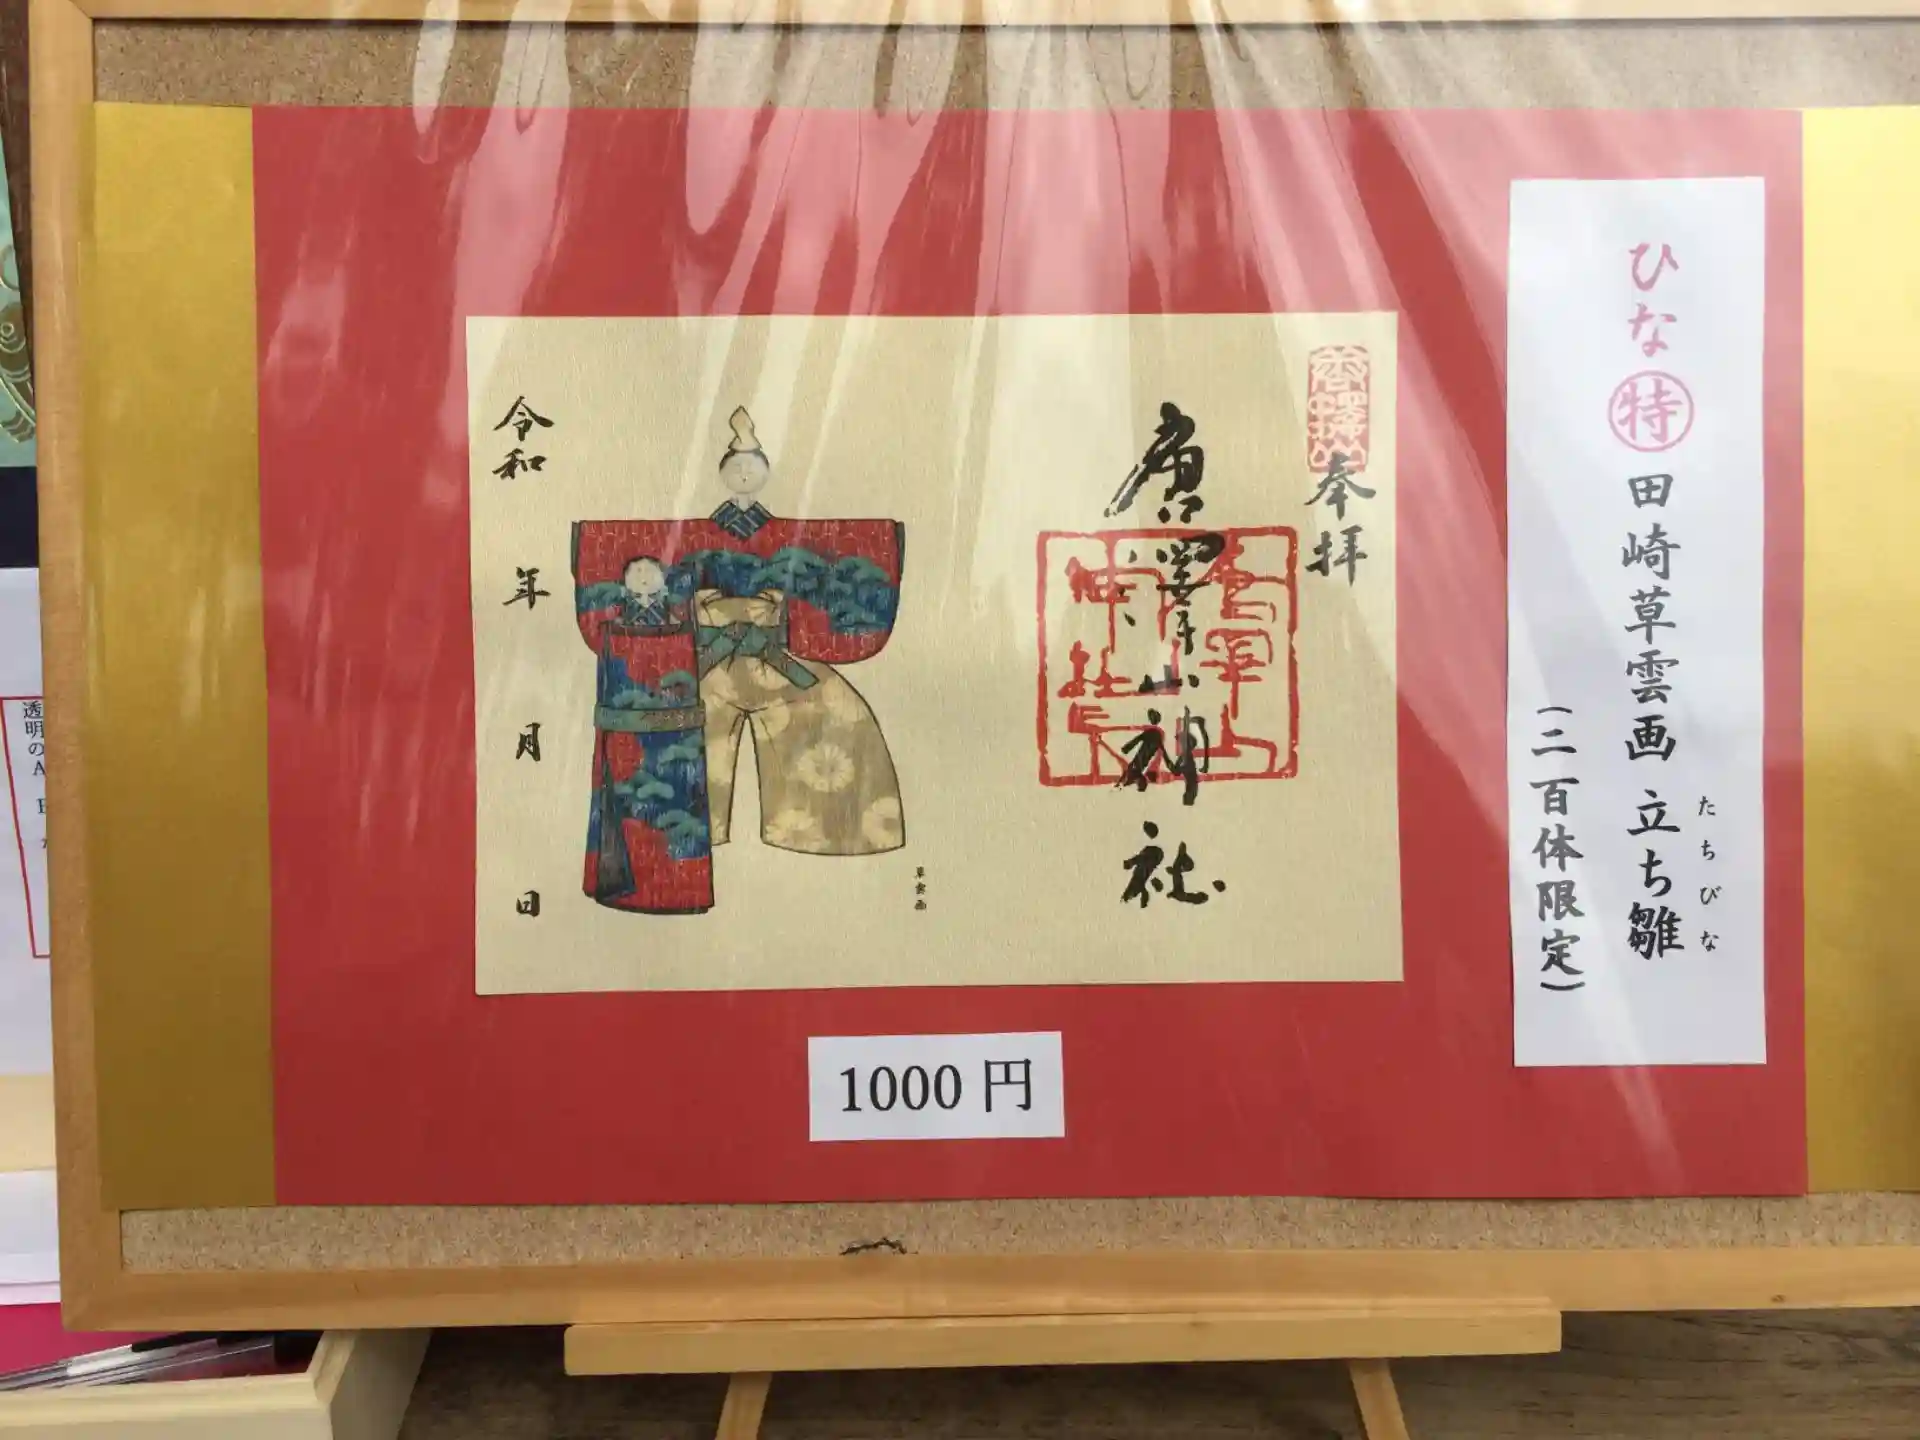 ひな特 田崎草雲画 立ち雛
たちびな
(二百体限定)
奉拝
唐澤山神社
草雲画
令和 年 月 日
1000円
透明の